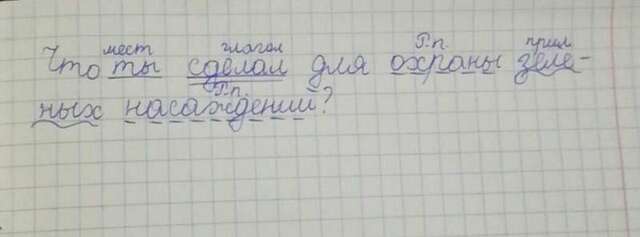 мест глагол Р.п. прил
Что ты сделал для охраны зеле-
Р.п.
ных насаждений?